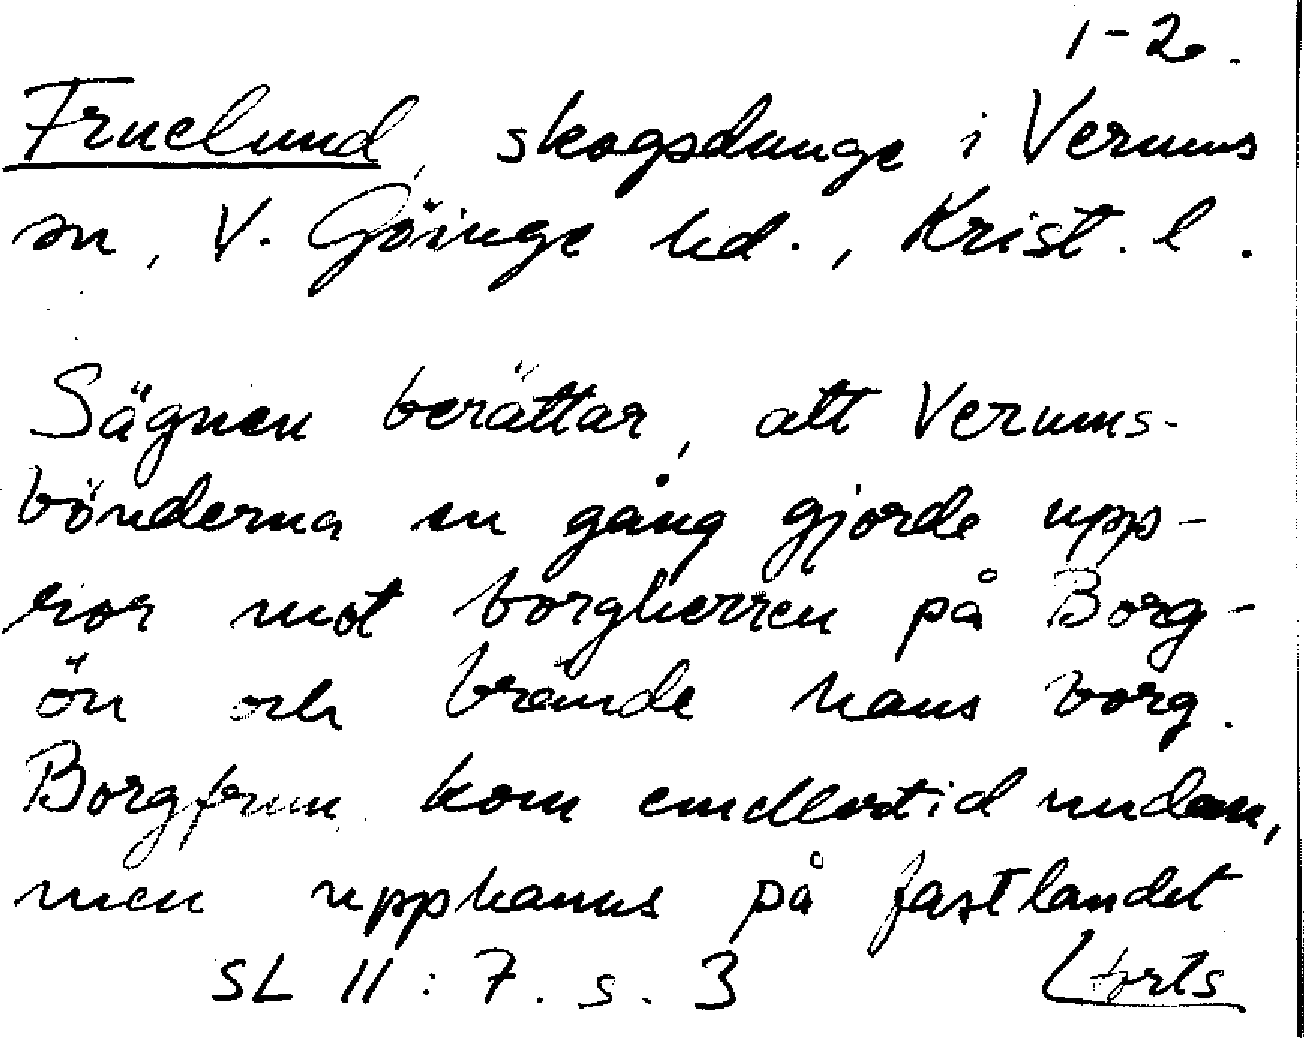 1-2.
Fruelund, skogsdunge i Verums
sn, V. Göinge hd., Krist. l.
Sägnen berättar, att Verums-
bönderna en gång gjorde upp-
ror mot borgherren på Borg-
ön och brände hans borg.
Borgfrun kom emellertid undan,
men upphanns på fastlandet
SL 11:7. s. 3 forts